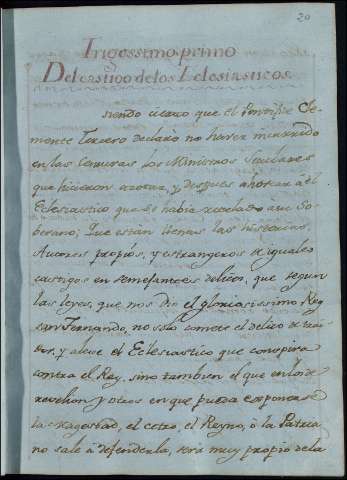 20
Trigessimo primo
Del castigo de los Eclesiasticos.
siendo cierto que el Pontifice Cle-
mente Tercero declaró no haver incurrido
en las Censuras los Ministros Seculares
que hicieron azotar, y despues ahorcar á el
Eclesiastico que se habia revelado á su So-
berano; Que estàn llenas las historias,
Autores propios, y estrangeros de iguales
castigos en semejantes delitos, que segun
las leyes, que nos dio el gloriosissimo Rey
san Fernando, no solo comete el delito de trai-
dor, y aleve el Eclesiastico que conspira
contra el Rey, sino tambien el que en los de
revelion y otros en que pueda exponerse
la Magestad, el cetro, el Reyno, ó la Patria
no sale á defenderla, será muy propio de la